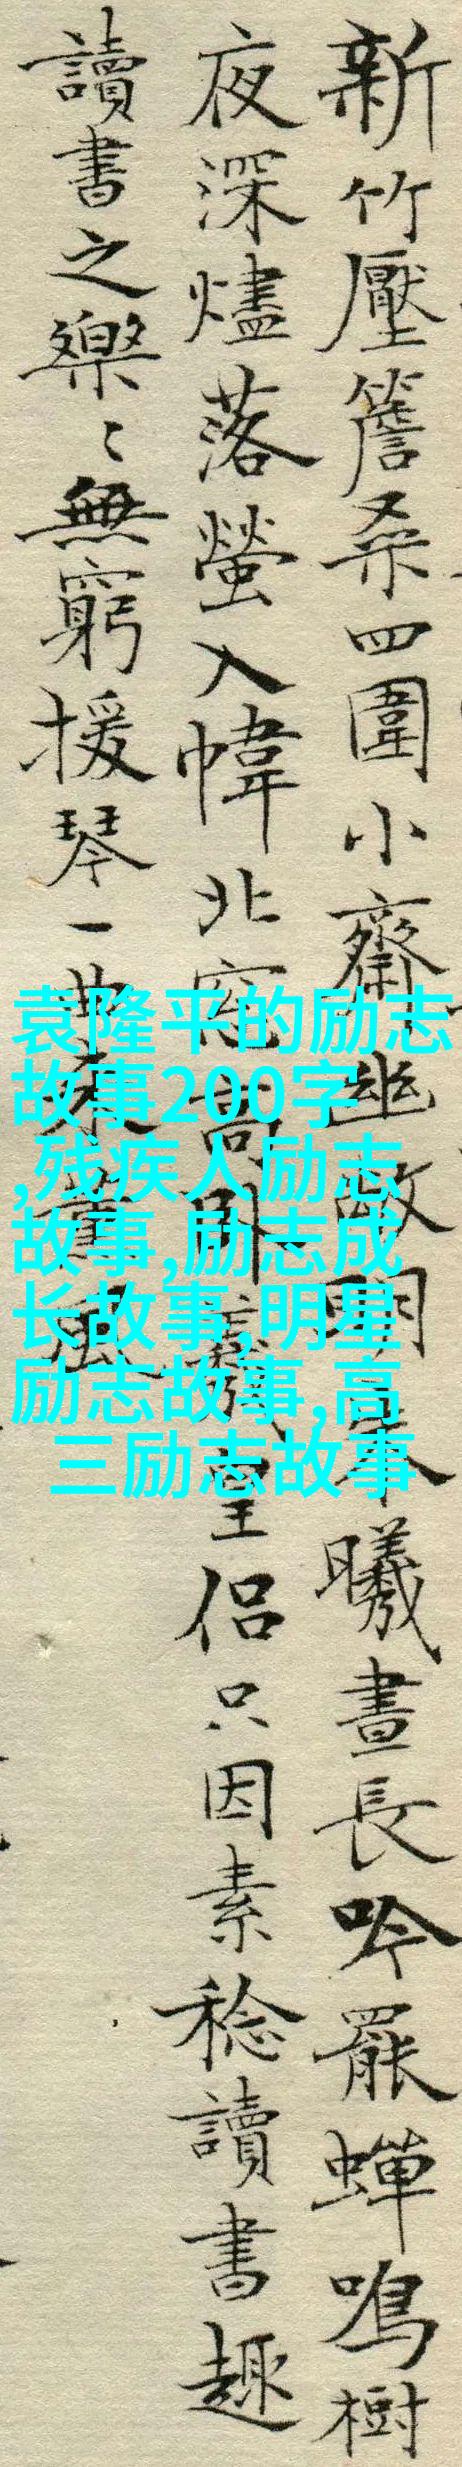 新竹壓簷桑四圍小齋幽敞明朱曦晝長吟罷蟬鳴樹
夜深燼落螢入幃北窓高臥羲皇侶只因素稔讀書趣
讀書之樂〻無窮援琴一曲來薰風
袁隆平的励志
故事200字
,残疾人励志
故事,励志成
长故事,明星
励志故事,高
三励志故事